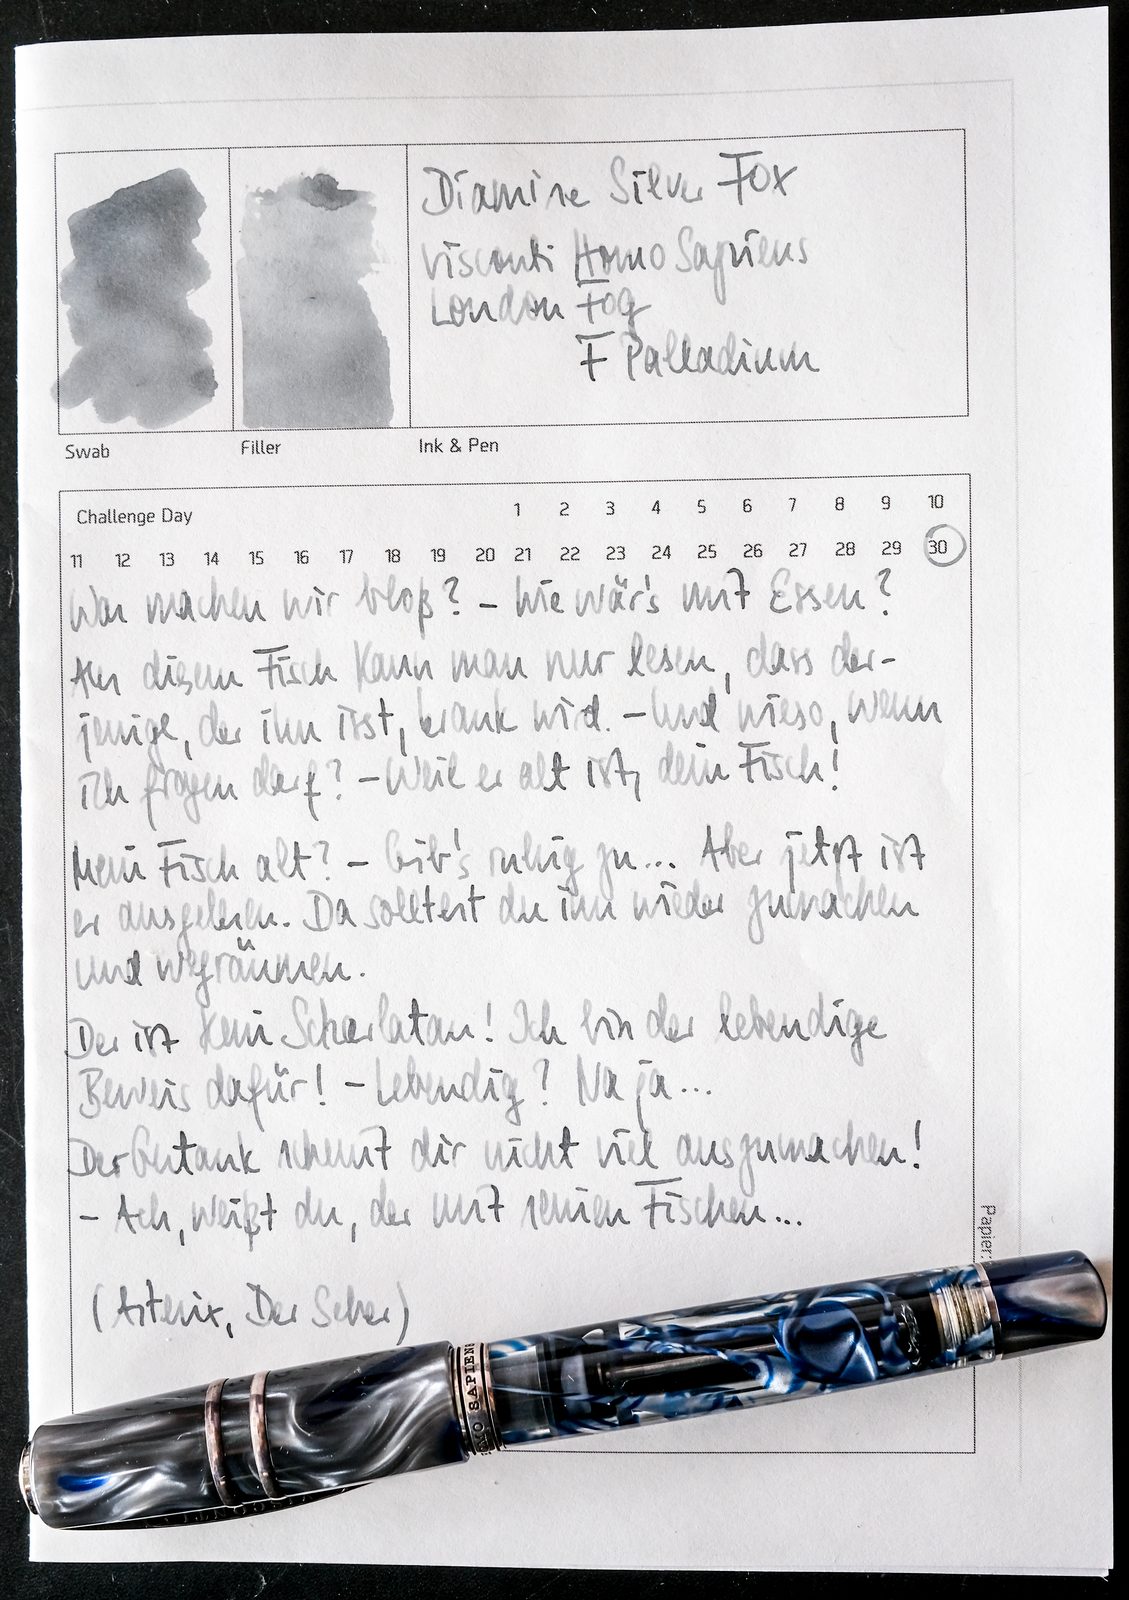 Diamine Silver Fox
Visconti Homo Sapiens
London Fog
F Palladium
Swab
Filler
Ink & Pen
Challenge Day 1 2 3 4 5 6 7 8 9 10
11 12 13 14 15 16 17 18 19 20 21 22 23 24 25 26 27 28 29 30
Was machen wir bloß? – Wie wär's mit Essen?
Aus diesem Fisch kann man nur lesen, dass der-
jenige, der ihn isst, krank wird. – Und wieso, wenn
ich fragen darf? – Weil er alt ist, dein Fisch!
Mein Fisch alt? – Gib's ruhig zu... Aber jetzt ist
er ausgelesen. Da solltest du ihn wieder zumachen
und wegräumen.
Der ist kein Scharlatan! Ich bin der lebendige
Beweis dafür! – Lebendig? Na ja...
Der Gestank scheint dir nicht viel auszumachen!
– Ach, weißt du, der mit seinen Fischen...
(Asterix, Der Seher)
Papier:
HOMO SAPIENS